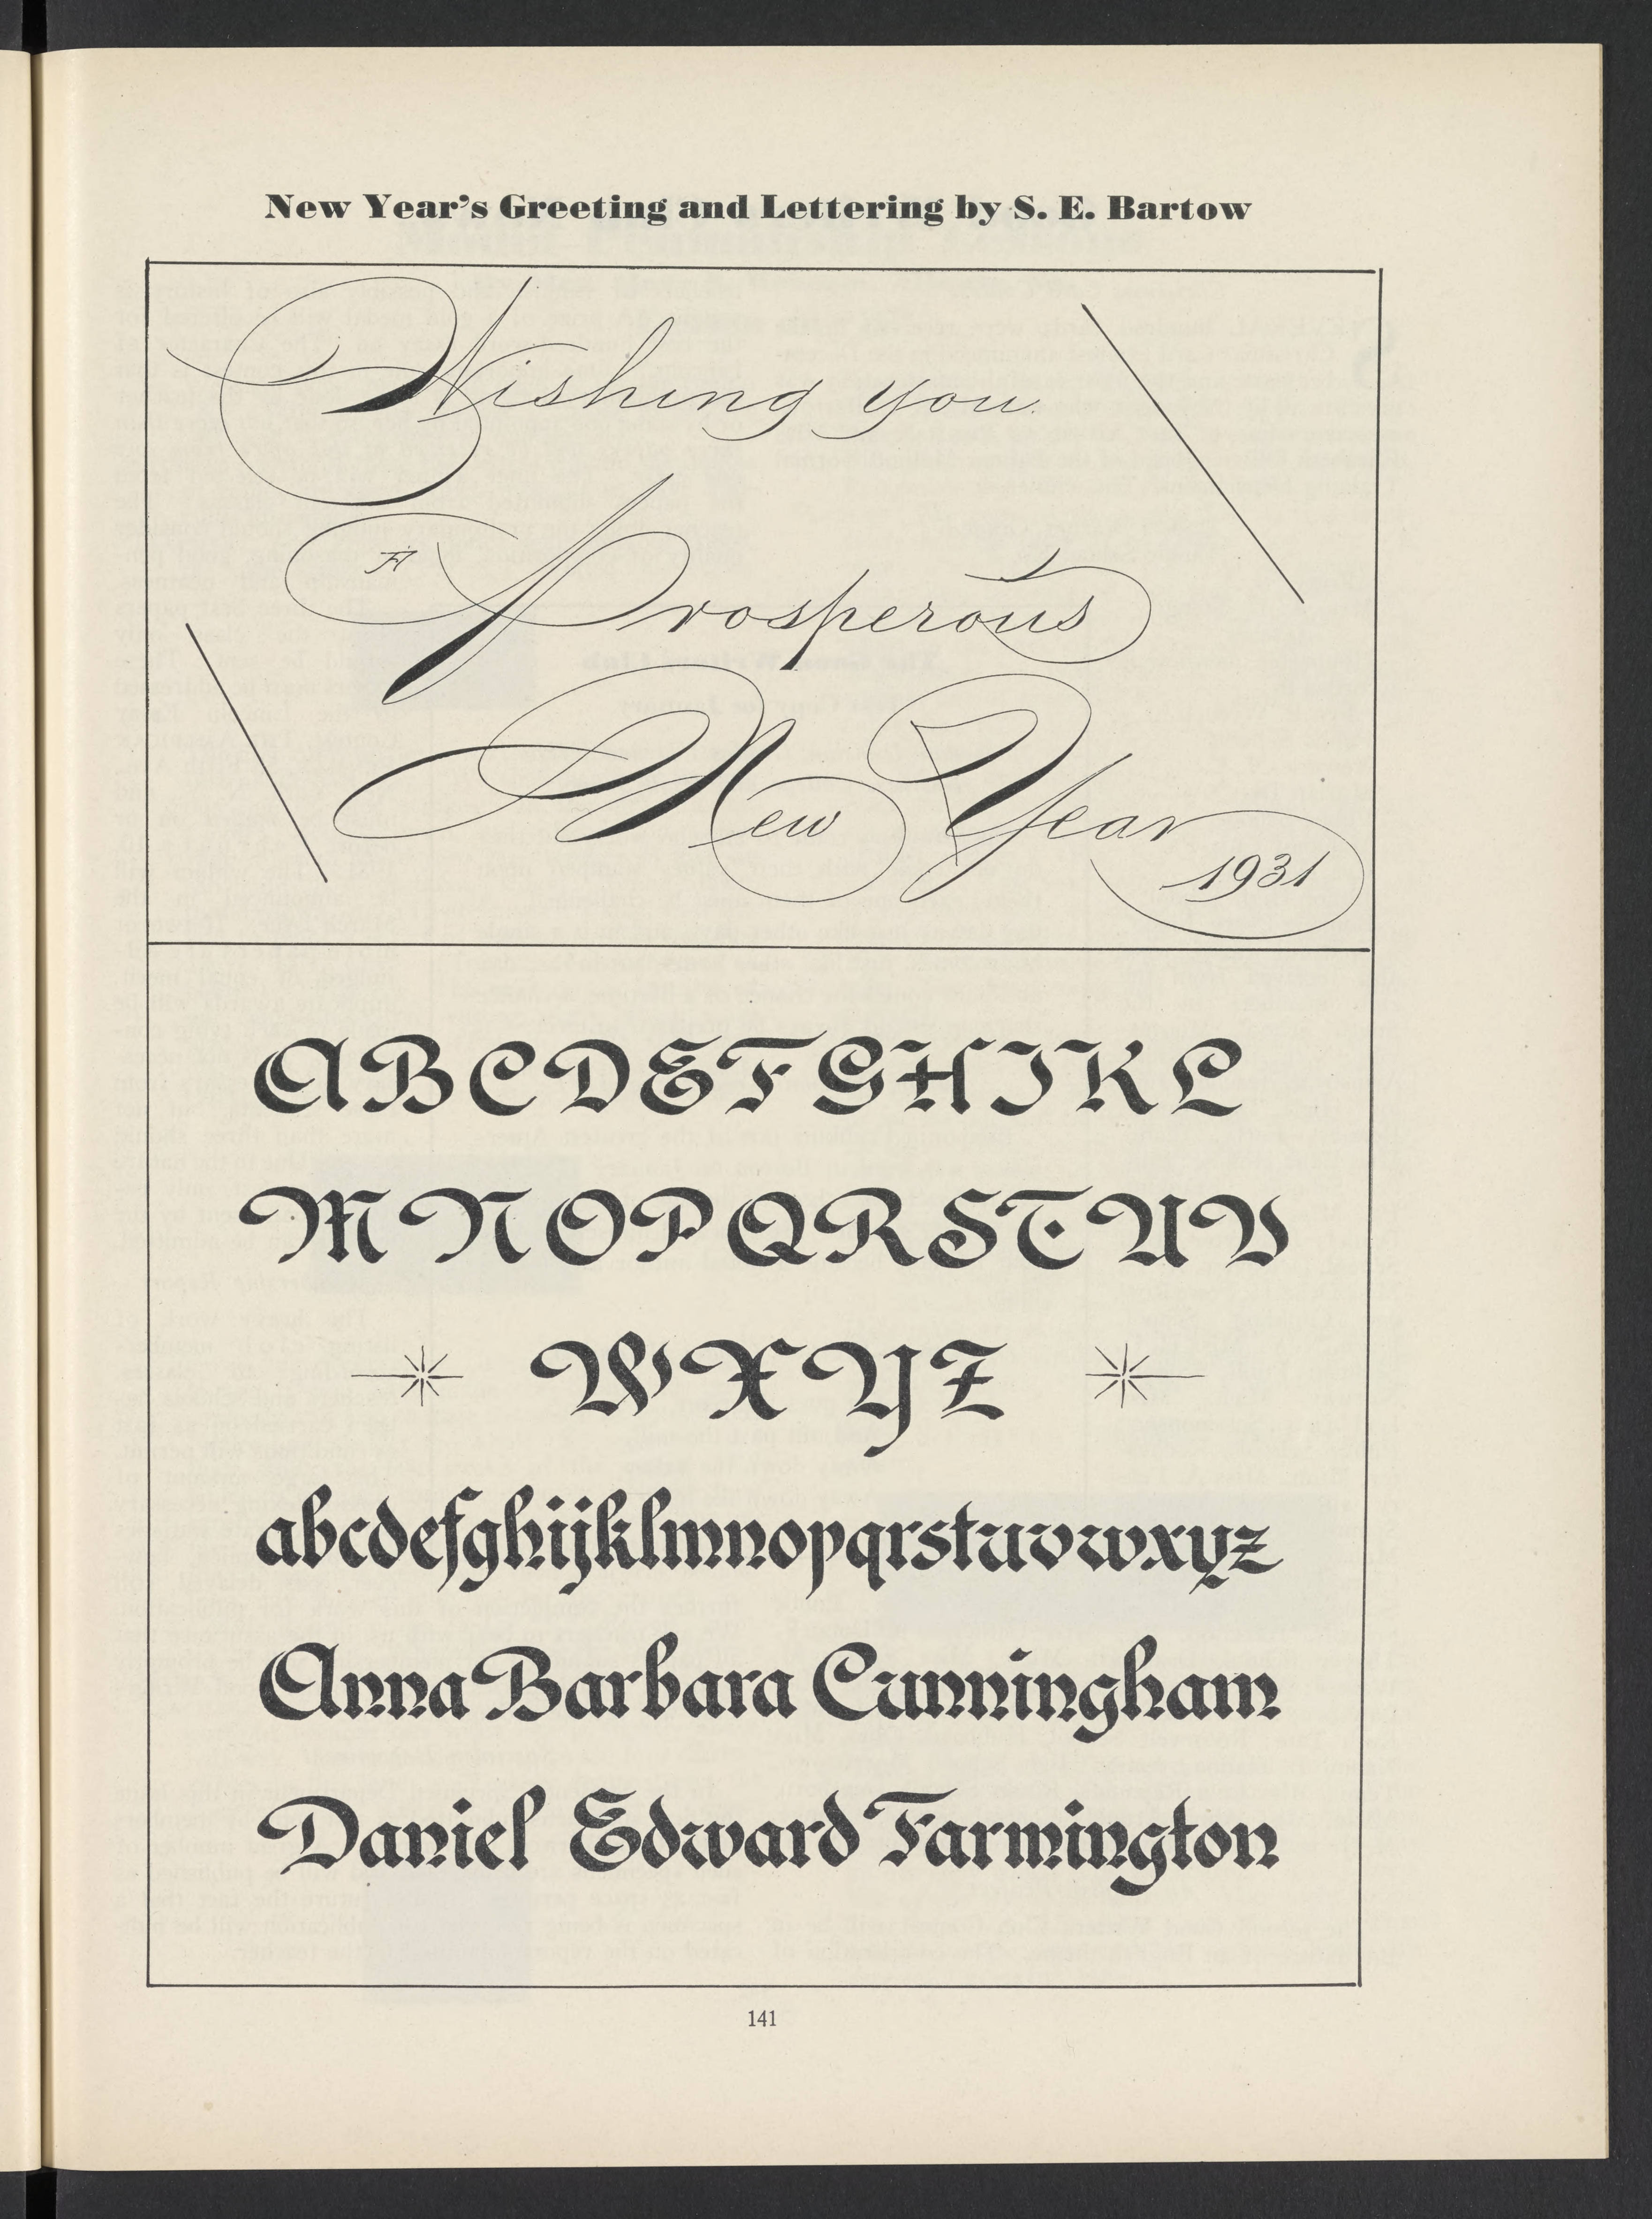 New Year's Greeting and Lettering by S. E. Bartow
Wishing you
A
Prosperous
New Year
1931
ABCDEFGHIJKL
MNOPQRSTUV
WXYZ
abcdefghijklmnopqrstuvwxyz
Anna Barbara Cunningham
Daniel Edward Farmington
141